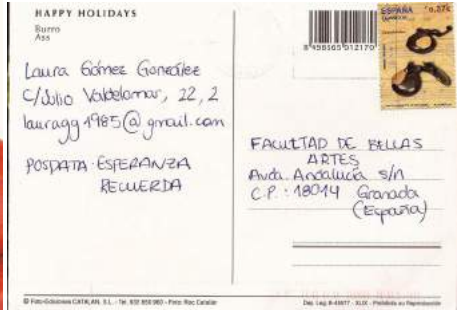 HAPPY HOLIDAYS
Burro
Ass
Laura Gómez González
C/Julio Valdelomar, 22, 2
lauragg1985@gmail.com
POSDATA: ESPERANZA
RECUERDA
ESPAÑA
0,37€
8 498565 012170
FACULTAD DE BELLAS
ARTES
Avda. Andalucía s/n
C.P.: 18014 Granada
(España)
© Foto-Ediciones CATALAN, S.L. - Tel. 932 850 960 - Foto: Roc Catalán
Dep. Leg. B-45977 - XLIX - Prohibida su Reproducción